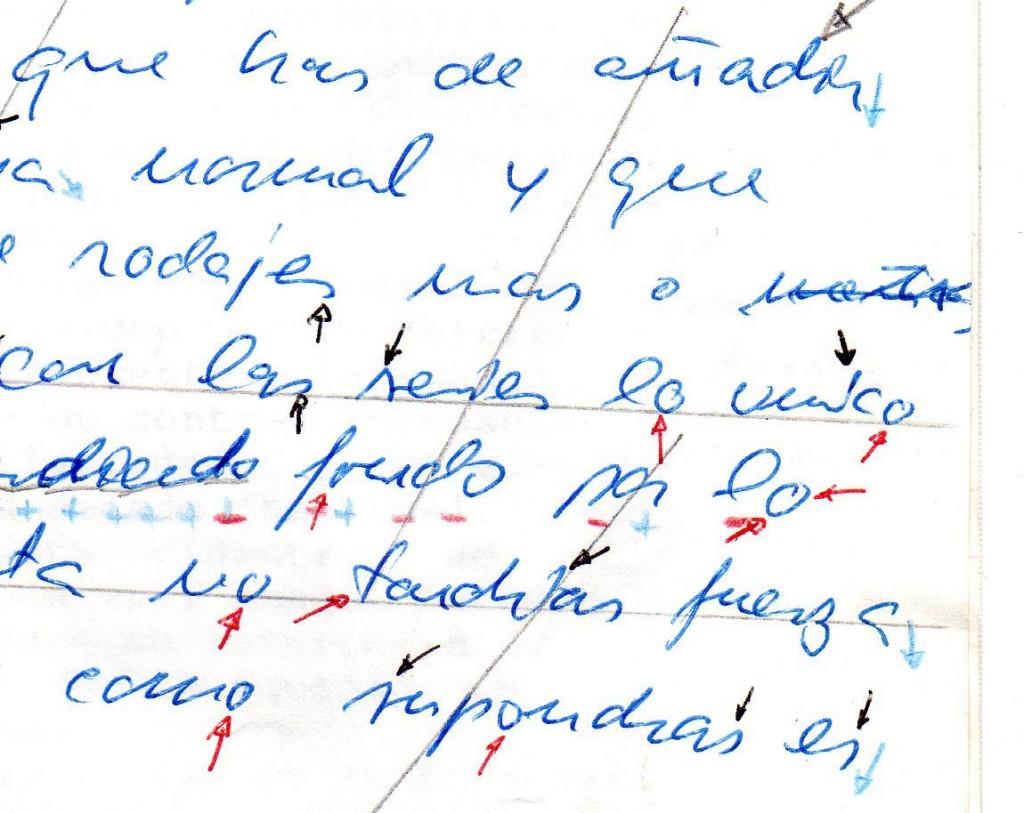 que has de añadir
normal y que
rodajes mas o
con las redes lo unico
fondo por lo
no tendrias fuerza
como supondras es